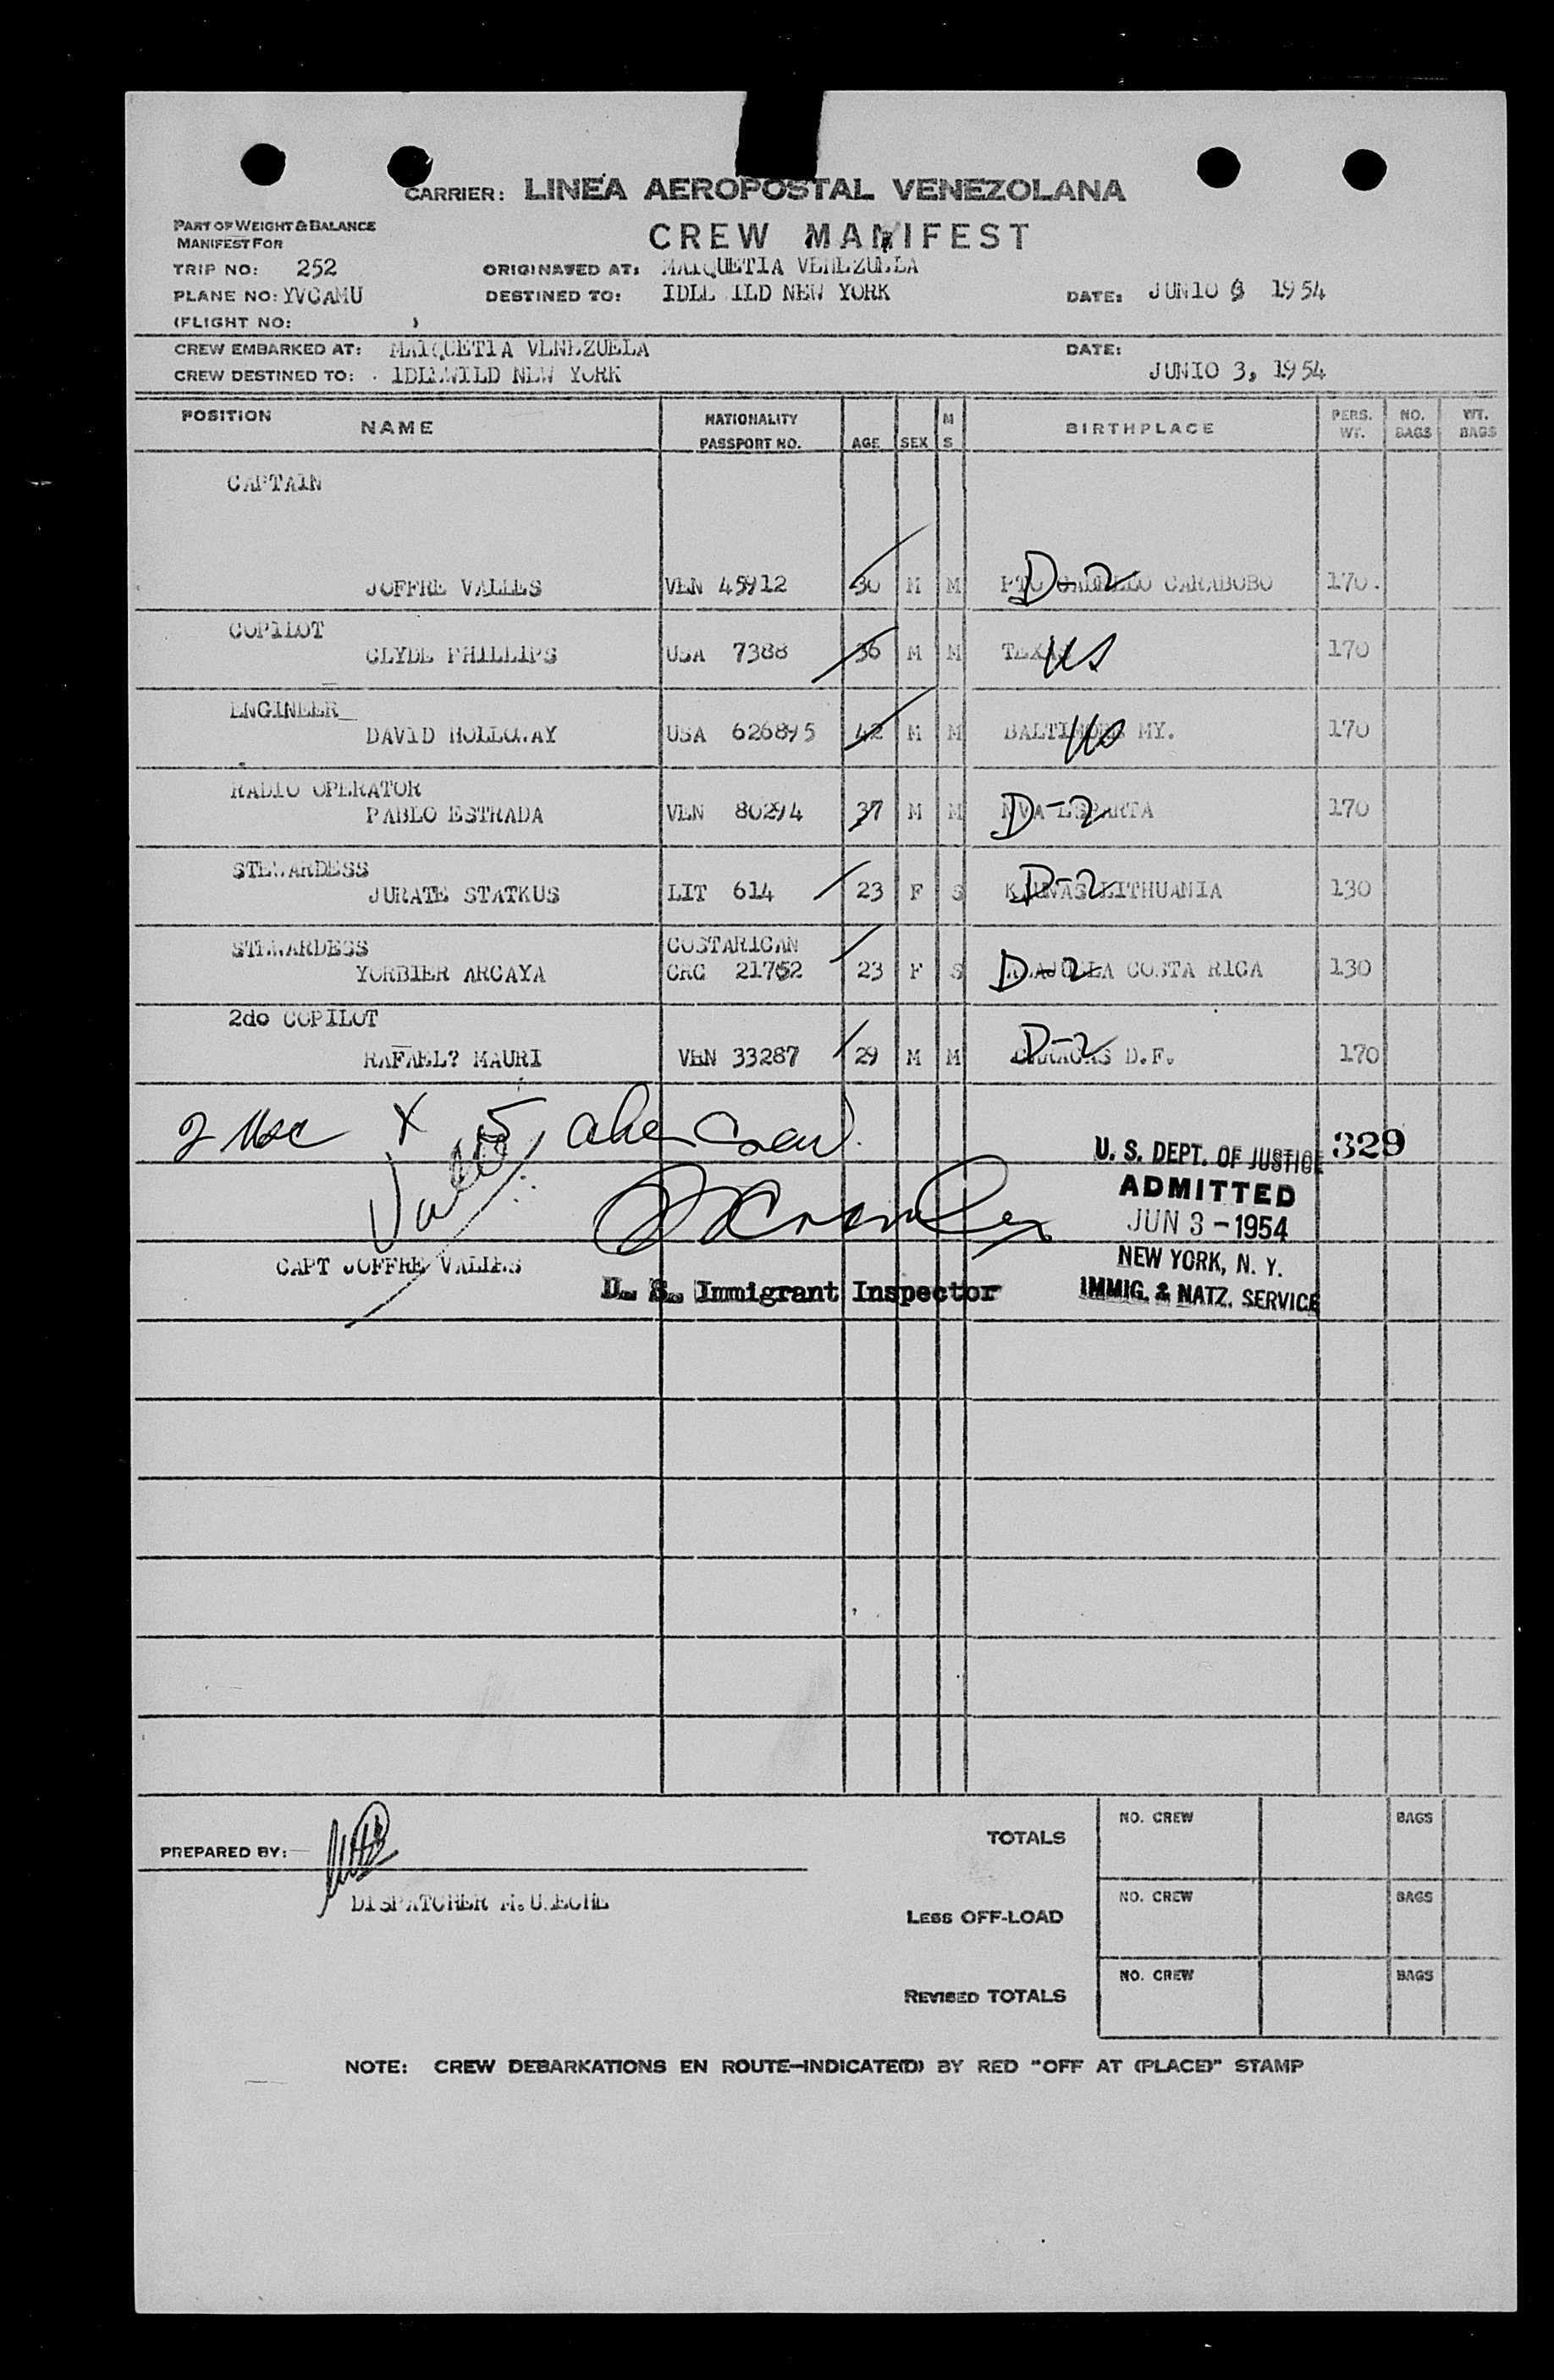 CARRIER: LINEA AEROPOSTAL VENEZOLANA
PART OF WEIGHT & BALANCE
MANIFEST FOR
CREW MANIFEST
TRIP NO: 252 ORIGINATED AT: MAIQUETIA VENEZUELA
PLANE NO: YVCAMU DESTINED TO: IDLEWILD NEW YORK DATE: JUNIO 3 1954
(FLIGHT NO: )
CREW EMBARKED AT: MAIQUETIA VENEZUELA DATE:
CREW DESTINED TO: IDLEWILD NEW YORK JUNIO 3, 1954
POSITION NAME NATIONALITY PASSPORT NO. AGE SEX M S BIRTHPLACE PERS. WT. NO. BAGS WT. BAGS
CAPTAIN
JOFFRE VALLES VEN 45912 30 M M PTO CABELLO CARABOBO 170. D-2
COPILOT
CLYDE PHILLIPS USA 7388 36 M M TEXAS US 170
ENGINEER
DAVID HOLLOWAY USA 626895 42 M M BALTIMORE MY. US 170
RADIO OPERATOR
PABLO ESTRADA VEN 80294 37 M M NVA ESPARTA D-2 170
STEWARDESS
JURATE STATKUS LIT 614 23 F S KAUNAS LITHUANIA D-2 130
STEWARDESS COSTARICAN
YORBIER ARCAYA CRC 21762 23 F S ALAJUELA COSTA RICA D-2 130
2do COPILOT
RAFAEL? MAURI VEN 33287 29 M M CARACAS D.F. D-2 170
2 usc + 5 alien crew.
U. S. DEPT. OF JUSTICE 329
ADMITTED
JUN 3 - 1954
NEW YORK, N. Y.
IMMIG. & NATZ. SERVICE
CAPT JOFFRE VALLES
U. S. Immigrant Inspector
PREPARED BY:
DISPATCHER M.
TOTALS NO. CREW BAGS
LESS OFF-LOAD NO. CREW BAGS
REVISED TOTALS NO. CREW BAGS
NOTE: CREW DEBARKATIONS EN ROUTE—INDICATE(D) BY RED "OFF AT (PLACE)" STAMP